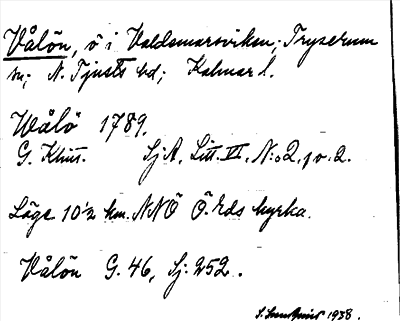 Vålön, ö i Valdemarsviken; Tryserum
sn; N. Tjusts hd; Kalmar l.
Wålö 1789.
G. Klint. SjA, Litt. VI, N:o 2, p v. 2.
Läge 10 1/2 km. NNÖ Ö. Eds kyrka.
Vålön G. 46, Sj: 252.
S. 1938.